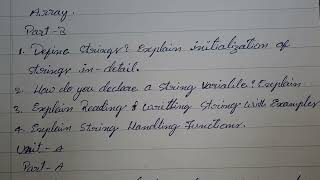 Array.
Part-B
1. Define Strings? Explain initialization of
Strings in-detail.
2. How do you declare a String Variable? Explain
3. Explain Reading & Writting Strings With Examples
4. Explain String Handling Functions.
Unit - A
Part - A